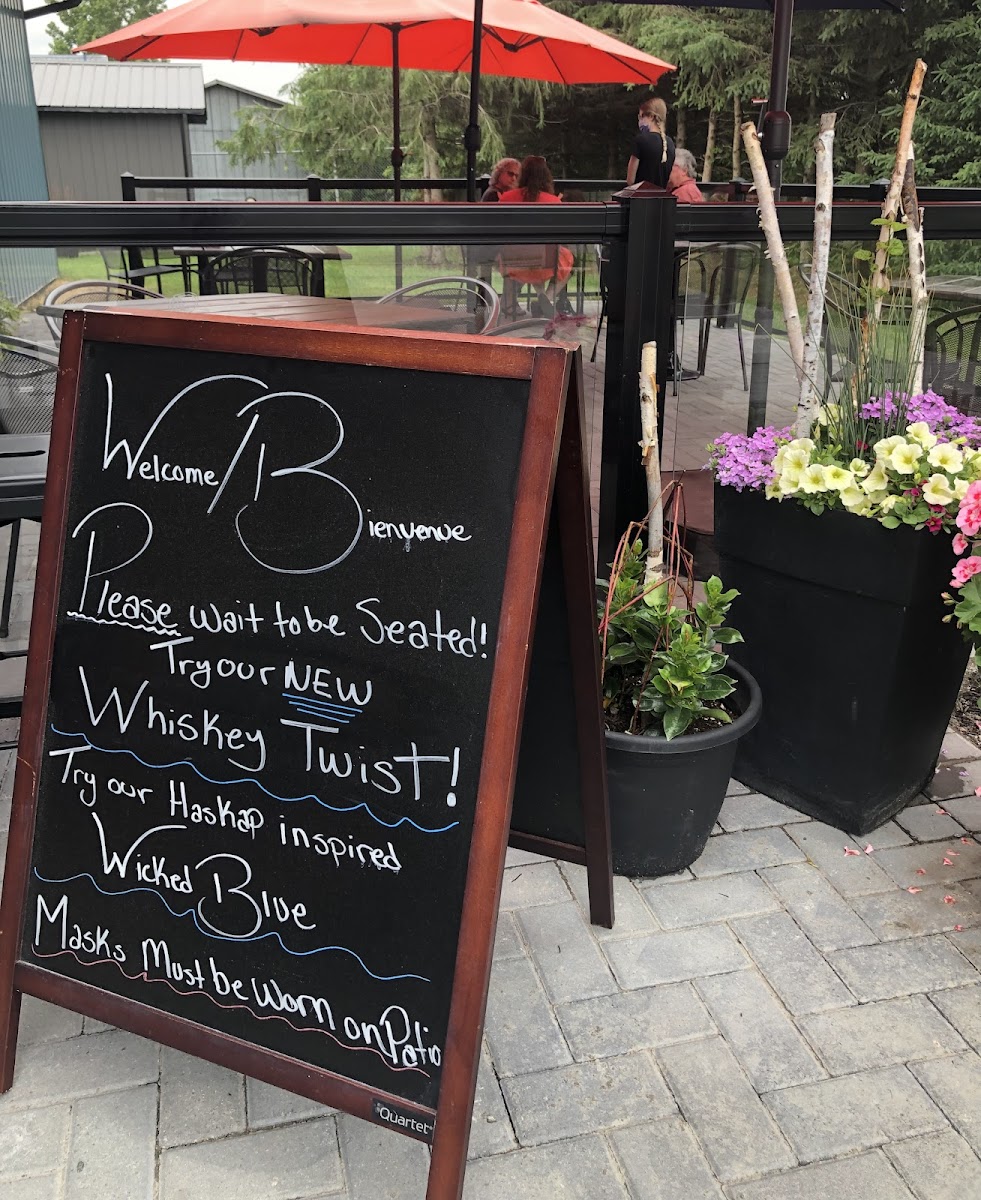 Welcome/Bienvenue
Please wait to be Seated!
Try our NEW
Whiskey Twist!
Try our Haskap inspired
Wicked Blue
Masks Must be Worn on Patio
Quartet